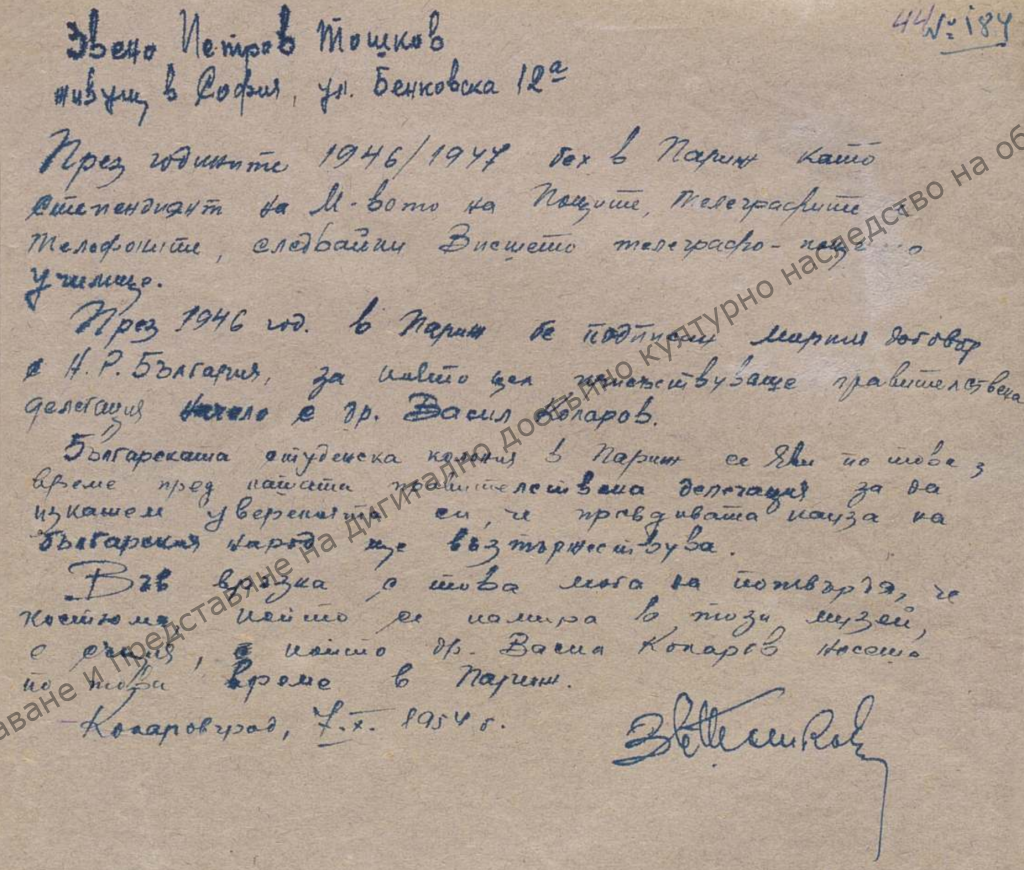 44 № 184
Звено Петров Тошков
живущ в София, ул. Бенковска 12а
През годините 1946/1947 бях в Париж като
стипендиянт на М-вото на Пощите, Телеграфите
Телефоните, следвайки Висшето телеграфо-пощенско
училище.
През 1946 год. в Париж бе подписан мирния договор
с Н. Р. България, за който цел присъствуваше правителствена
делегация начело с др. Васил Коларов.
Българската студенска колония в Париж се яви по това
време пред нашата правителствена делегация за да
изкажем увереността си, че правдивата кауза на
българския народ ще възтържествува.
Във връзка с това мога да потвърдя, че
костюма който се намира в този музей,
е същия, с който др. Васил Коларов носеше
по това време в Париж.
Коларовград, 7.X. 1954 г.
Зв Тошков
аване и представяне на дигитално достъпно културно наследство на об